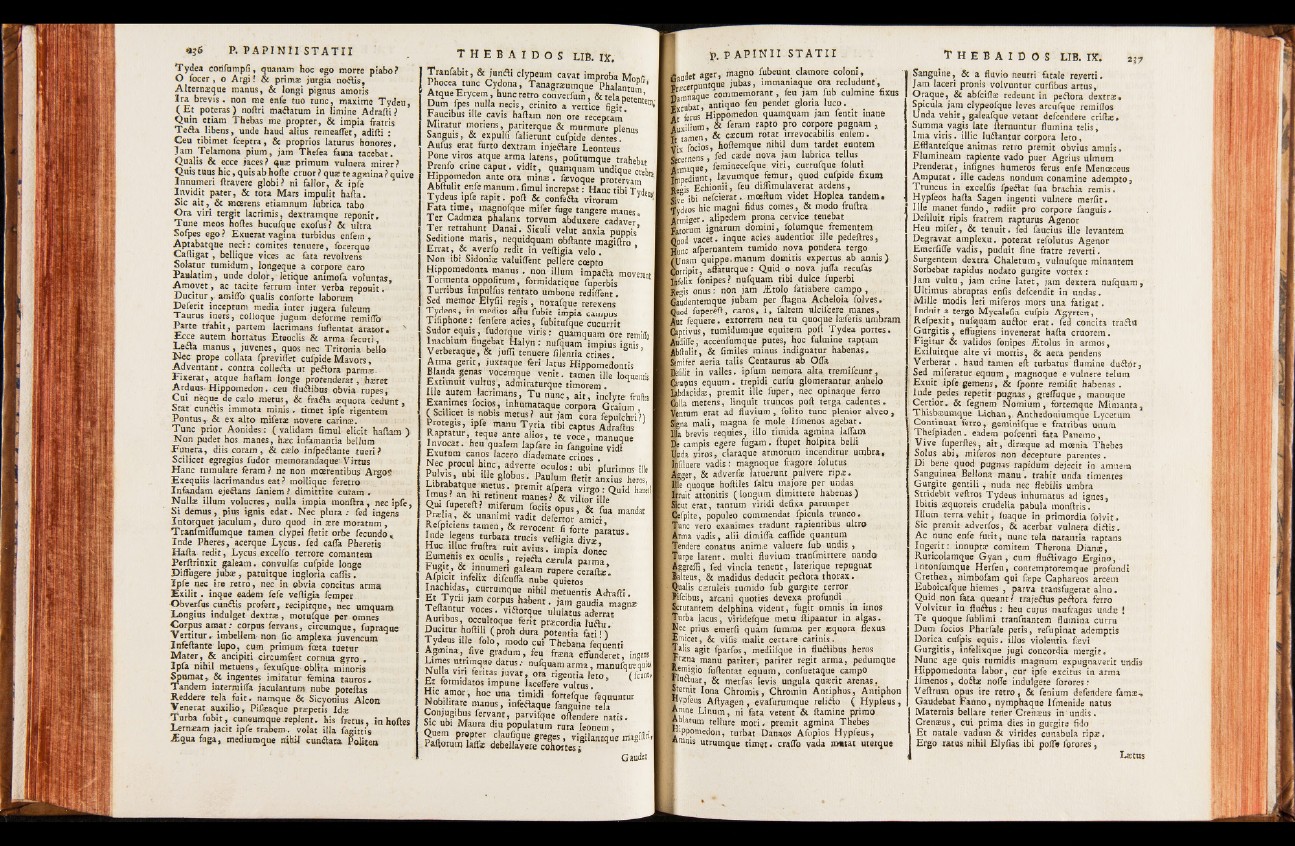 236 P. PAPINII STATII
Tydea conſumpſi, quanam hoc ego morte piabo?
O ſocer, o Argi! & primæ jurgia noctis,
Alternæque manus, & longi pignus amoris
Ira brevis. non me enſe tuo tunc, maxime Tydeu,
( Et poteras ) noſtri mactatum in limine Adraſti?
Quin etiam Thebas me propter, & impia fratris
Tecta libens, unde haud alius remeaſſet, adiſti:
Ceu tibimet ſceptra, & proprios laturus honores.
Jam Telamona pium, jam Theſea fama tacebat.
Qualis & ecce jaces? quæ primum vulnera mirer?
Quis tuus hic, quis ab hoſte cruor? quæ te agmina? quive
Innumeri ſtravere globi? ni fallor, & ipſe
Invidit pater, & tota Mars impulit haſta.
Sic ait, & mœrens etiamnum lubrica tabo
Ora viri tergit lacrimis, dextramque reponit.
Tune meos hoſtes hucuſque exoſus? & ultra
Soſpes ego? Exuerat vagina turbidus enſem,
Aptabatque neci: comites tenuere, ſocerque
Caſtigat, bellique vices ac fata revolvens
Solatur tumidum, longeque a corpore caro
Paulatim, unde dolor, letique animoſa voluntas,
Amovet, ac tacite ferrum inter verba reponit.
Ducitur, amiſſo qualis conſorte laborum
Deſerit inceptum media inter jugera ſulcum
Taurus iners, colloque jugum deforme remiſſo
Parte trahit, partem lacrimans ſuſtentat arator.
Ecce autem hortatus Eteoclis & arma ſecuti,
Lecta manus, juvenes, quos nec Tritonia bello
Nec prope collata ſpreviſſet cuſpide Mavors,
Adventant. contra collecta ut pectora parmæ
Fixerat, atque haſtam longe protenderat, hæret
Arduus Hippomedon. ceu fluctibus obvia rupes,
Cui neque de cælo metus, & fracta æquora cedunt,
Stat cunctis immota minis. timet ipſe rigentem
Pontus, & ex alto miſeræ novere carinæ.
Tunc prior Aonides: ( validam ſimul elicit haſtam )
Non pudet hos manes, hæc infamantia bellum
Funera, diis coram, & cælo inſpectante tueri?
Scilicet egregius ſudor memorandaque Virtus
Hanc tumulare feram? ne non mœrentibus Argos
Exequiis lacrimandus eat? mollique feretro
Infandam ejectans ſaniem? dimittite curam.
Nullæ illum volucres, nulla impia monſtra, nec ipſe,
Si demus, pius ignis edat. Nec plura: ſed ingens
Intorquet jaculum, duro quod in ære moratum,
Tranſmiſſumque tamen clypei ſtetit orbe ſecundo.
Inde Pheres, acerque Lycus. ſed caſſa Pheretis
Haſta redit, Lycus excelſo terrore comantem
Perſtrinxit galeam. convulſæ cuſpide longe
Diffugere jubæ, patuitque ingloria caſſis.
Ipſe nec ire retro, nec in obvia concitus arma
Exilit. inque eadem ſeſe veſtigia ſemper
Obverſus cunctis profert, recipitque, nec umquam
Longius indulget dextræ, motuſque per omnes
Corpus amat: corpus ſervans, circumque, ſupraque
Vertitur. imbellem non ſic amplexa juvencum
Infeſtante lupo, cum primum fœta tuetur
Mater, & ancipiti circumfert cornua gyro.
Ipſa nihil metuens, ſexuſque oblita minoris
Spumat, & ingentes imitatur femina tauros.
Tandem intermiſſa jaculantum nube poteſtas
Reddere tela fuit. namque & Sicyonius Alcon
Venerat auxilio, Piſæque præpetis Idæ
Turba ſubit, cuneumque replent. his fretus, in hoſtes
Lernæam jacit ipſe trabem. volat illa ſagittis
Æqua fuga, mediumque nihil cunctata Politen
THEBAIDOS LIB. IX.
Tranſabit, & juncti clypeum cavat improba Mopſi,
Phocea tunc Cydona, Tanagræumque Phalantum,
Atque Erycem, hunc retro converſum, & tela petentem,
Dum ſpes nulla necis, crinito a vertice figit.
Faucibus ille cavis haſtam non ore receptam
Miratur moriens, pariterque & murmure plenus
Sanguis, & expulſi ſalierunt cuſpide dentes.
Auſus erat furto dextram injectare Leonteus
Pone viros atque arma latens, poſitumque trahebat
Prenſo crine caput. vidit, quamquam undique crebræ
Hippomedon ante ora minæ. ſævoque protervam
Abſtulit enſe manum. ſimul increpat: Hanc tibi Tydeus,
Tydeus ipſe rapit. poſt & confecta virorum
Fata time, magnoſque miſer fuge tangere manes.
Ter Cadmea phalanx torvum abduxere cadaver,
Ter retrahunt Danai. Siculi velut anxia puppis
Seditione maris, nequidquam obſtante magiſtro,
Errat, & averſo redit in veſtigia velo.
Non ibi Sidoniæ valuiſſent pellere cœpto
Hippomedonta manus. non illum impacta moverent
Tormenta oppoſitum, formidatique ſuperbis
Turribus impulſus tentato umbone rediſſent.
Sed memor Elyſii regis, noxaſque retexens
Tydeos, in medios aſtu ſubit impia campos
Tiſiphone: ſenſere acies, ſubituſque cucurrit
Sudor equis, ſudorque viris: quamquam ore remiſſo
Inachium fingebat Halyn: nuſquam impius ignis,
Verberaque, & juſſi tenuere ſilentia crines.
Arma gerit, juxtaque feri latus Hippomedontis
Blanda genas vocemque venit. tamen ille loquentis
Extimuit vultus, admiraturque timorem.
Ille autem lacrimans, Tu nunc, ait, inclyte fruſtra
Exanimes ſocios, inhumataque corpora Graium,
( Scilicet is nobis metus? aut jam cura ſepulchri?)
Protegis, ipſe manu Tyria tibi captus Adraſtus
Raptatur, teque ante alios, te voce, manuque
Invocat. heu qualem lapſare in ſanguine vidi
Exutum canos lacero diademate crines.
Nec procul hinc, adverte oculos: ubi plurimus ille
Pulvis, ubi ille globus. Paulum ſtetit anxius heros,
Librabatque metus. premit aſpera virgo: Quid hæres?
Imus? an hi retinent manes? & vilior ille
Qui ſupereſt? miſerum ſociis opus, & ſua mandat
Prælia, & unanimi vadit deſertor amici,
Reſpiciens tamen, & revocent ſi forte paratus.
Inde legens turbata trucis veſtigia divæ,
Huc illuc fruſtra ruit avius. impia donec
Eumenis ex oculis, rejecta cærula parma,
Fugit, & innumeri galeam rupere ceraſtæ.
Aſpicit infelix diſcuſſa nube quietos
Inachidas, currumque nihil metuentis Adraſti.
Et Tyrii jam corpus habent. jam gaudia magnæ
Teſtantur voces. victorque ululatus aderrat
Auribus, occultoque ferit præcordia luctu.
Ducitur hoſtili ( proh dura potentia fati! )
Tydeus ille ſolo, modo cui Thebana ſequenti
Agmina, ſive gradum, ſeu fræna effunderet, ingens
Limes utrimque datus: nuſquam arma, manuſque quie
Nulla viri feritas juvat, ora rigentia leto,
Et formidatos impune laceſſere vultus.
Hic amor, hoc una timidi forteſque ſequuntur
Nobilitare manus, infectaque ſanguine tela
Conjugibus ſervant, parviſque oſtendere natis.
Sic ubi Maura diu populatum rura leonem,
Quem propter clauſique greges, vigilantque magiſtri,
Paſtorum laſſæ debellavere cohortes;
Gaudet
P. PAPINII STATII
Gaudet ager, magno ſubeunt clamore coloni,
Præcerpuntque jubas, immaniaque ora recludunt,
Damnaque commemorant, ſeu jam ſub culmine fixus
Excubat, antiquo ſeu pendet gloria luco.
At ferus Hippomedon quamquam jam ſentit inane
Auxilium, & ſeram rapto pro corpore pugnam,
It tamen, & cæcum rotat irrevocabilis enſem.
Vix ſocios, hoſtemque nihil dum tardet euntem
Secernens, ſed cæde nova jam lubrica tellus
Armaque, ſemineceſque viri, currufque ſoluti
Impediunt, lævumque femur, quod cuſpide fixum
Regis Echionii, ſeu diſſimulaverat ardens,
Sive ibi neſcierat. mœſtum videt Hoplea tandem.
Tydeos hic magni fidus comes, & modo fruſtra
Armiger. alipedem prona cervice tenebat
Fatorum ignarum domini, ſolumque frementem
Quod vacet. inque acies audentior ille pedeſtres,
Hunc aſpernantem tumido nova pondera tergo
(Unam quippe manum domitis expertus ab annis)
Corripit, affaturque: Quid o nova juſſa recuſas
Infelix ſonipes? nuſquam tibi dulce ſuperbi
Regis onus: non jam Ætolo ſatiabere campo,
Gaudentemque jubam per ſtagna Acheloia ſolves.
Quod ſupereſt, caros, i, ſaltem ulciſcere manes.
Aut ſequere. extorrem neu tu quoque læſeris umbram
Captivus, tumidumque equitem poſt Tydea portes.
Audiſſe, accenſumque putes, hoc fulmine raptum
Abſtulit, & ſimiles minus indignatur habenas.
Semifer aeria talis Centaurus ab Oſſa
Deſilit in valles. ipſum nemora alta tremiſcunt,
Campus equum. trepidi curſu glomerantur anhelo
Labdacidæ, premit ille ſuper, nec opinaque ferro
Colla metens, linquit truncos poſt terga cadentes.
Ventum erat ad fluvium, ſolito tunc plenior alveo,
Signa mali, magna ſe mole Iſmenos agebat.
Illa brevis requies, illo timida agmina laſſam
De campis egere fugam. ſtupet hoſpita belli
Unda viros, claraque armorum incenditur umbra.
Inſiluere vadis: magnoque fragore ſolutus
Agger, & adverſæ latuerunt pulvere ripæ.
Ille quoque hoſtiles ſaltu majore per undas
Irruit attonitis ( longum dimittere habenas )
Sicut erat, tantum viridi defixa parumper
Ceſpite, populeo commendat ſpicula trunco.
Tunc vero exanimes tradunt rapientibus ultro
Arma vadis, alii dimiſſa caſſide quantum
Tendere conatus animæ valuere ſub undis,
Turpe latent. multi fluvium tranſmittere nando
Aggreſſi, ſed vincla tenent, laterique repugnat
Balteus, & madidus deducit pectora thorax.
Qualis cæruleis tumido ſub gurgite terror
Piſcibus, arcani quoties devexa profundi
Scrutantem delphina vident, fugit omnis in imos
Turba lacus, viridеſque metu ſtipantur in algas.
Nec prius emerſi quam ſumma per æquora flexus
Emicet, & viſis malit certare carinis.
Talis agit ſparſos, mediiſque in fluctibus heros
Fræna manu pariter, pariter regit arma, pedumque
Remigio ſuſtentat equum, conſuetaque campo
Fluctuat, & merſas levis ungula quærit arenas.
Sternit Iona Chromis, Chromin Antiphos, Antiphon
Hypſeus Aſtyagen, evaſurumque relicto ( Hypſeus,
Amne Linum, ni fata vetent & ſtamine primo
Ablatum tellure mori. premit agmina Thebes
Hippomedon, turbat Danaos Aſopios Hypſeus,
Amnis utrumque timet. craſſo vada mutat uterque
THEBAIDOS LIB. IX. 237
Sanguine, & a fluvio neutri fatale reverti.
Jam laceri pronis volvuntur curſibus artus,
Oraque, & abſciſſæ redeunt in pectora dextræ.
Spicula jam clypeoſque leves arcuſque remiſſos
Unda vehit, galeaſque vetant deſcendere criſtæ.
Summa vagis late ſternuntur flumina telis,
Ima viris. illic luctantur corpora leto,
Efflanteſque animas retro premit obvius amnis.
Flumineam rapiente vado puer Agrius ulmum
Prenderat, inſignes humeros ferus enſe Menœceus
Amputat. ille cadens nondum conamine adempto,
Truncus in excelſis ſpectat ſua brachia remis.
Hypſeos haſta Sagen ingenti vulnere merſit.
Ille manet fundo, rediit pro corpore ſanguis.
Deſiluit ripis fratrem rapturus Agenor
Heu miſer, & tenuit. ſed ſaucius ille levantem
Degravat amplexu. poterat reſolutus Agenor
Emerſiſſe vadis, puduit ſine fratre reverti.
Surgentem dextra Chaletum, vulnuſque minantem
Sorbebat rapidus nodato gurgite vortex:
Jam vultu, jam crine latet, jam dextera nuſquam,
Ultimus abruptas enſis deſcendit in undas.
Mille modis leti miſeros mors una fatigat.
Induit a tergo Mycaleſia cuſpis Agyrten,
Reſpexit, nuſquam auctor erat. ſed concita tractu
Gurgitis, effugiens invenerat haſta cruorem.
Figitur & validos ſonipes Ætolus in armos,
Exiluitque alte vi mortis, & aera pendens
Verberat. haud tamen eſt turbatus flumine ductor,
Sed miſeratur equum, magnoque e vulnere telum
Exuit ipſe gemens, & ſponte remiſit habenas.
Inde pedes repetit pugnas, greſſuque, manuque
Certior. & ſegnem Nomium, fortemque Mimanta,
Thisbæumque Lichan, Anthedoniumque Lycetum
Continuat ferro, geminiſque e fratribus unum
Theſpiaden. eadem poſcenti fata Panemo,
Vive ſuperſtes, ait, diræque ad mœnia Thebes
Solus abi, miſeros non decepture parentes.
Di bene quod pugnas rapidum dejecit in amnem
Sanguinea Bellona manu. trahit unda timentes
Gurgite gentili, nuda nec flebilis umbra
Stridebit veſtros Tydeus inhumatus ad ignes,
Ibitis æquoreis crudelia pabula monſtris.
Illum terra vehit, ſuaque in primordia ſolvit.
Sic premit adverſos, & acerbat vulnera dictis.
Ac nunc enſe furit, nunc tela natantia raptans
Ingerit: innuptæ comitem Therona Dianæ,
Ruricolamque Gyan, cum fluctivago Ergino,
Intonſumque Herſen, contemptoremque profundi
Crethea, nimboſam qui ſæpe Caphareos arcem
Euboicaſque hiemes, parva tranſfugerat alno.
Quid non fata queant? trajectus pectora ferro
Volvitur in fluctus: heu cujus naufragus undæ!
Te quoque ſublimi tranſnantem flumina curru
Dum ſocios Pharſale petis, reſupinat ademptis
Dorica cuſpis equis. illos violentia ſævi
Gurgitis, infelixque jugi concordia mergit.
Nunc age quis tumidis magnum expugnaverit undis
Hippomedonta labor, cur ipſe excitus in arma
Iſmenos, doctæ noſſe indulgere ſorores:
Veſtrum opus ire retro, & ſenium defendere famæ.
Gaudebat Fauno, nymphaque Iſmenide natus
Maternis bellare tener Crenæus in undis.
Crenæus, cui prima dies in gurgite fido
Et natale vadum & virides cunabula ripæ.
Ergo ratus nihil Elyſias ibi poſſe ſorores,
Lætus